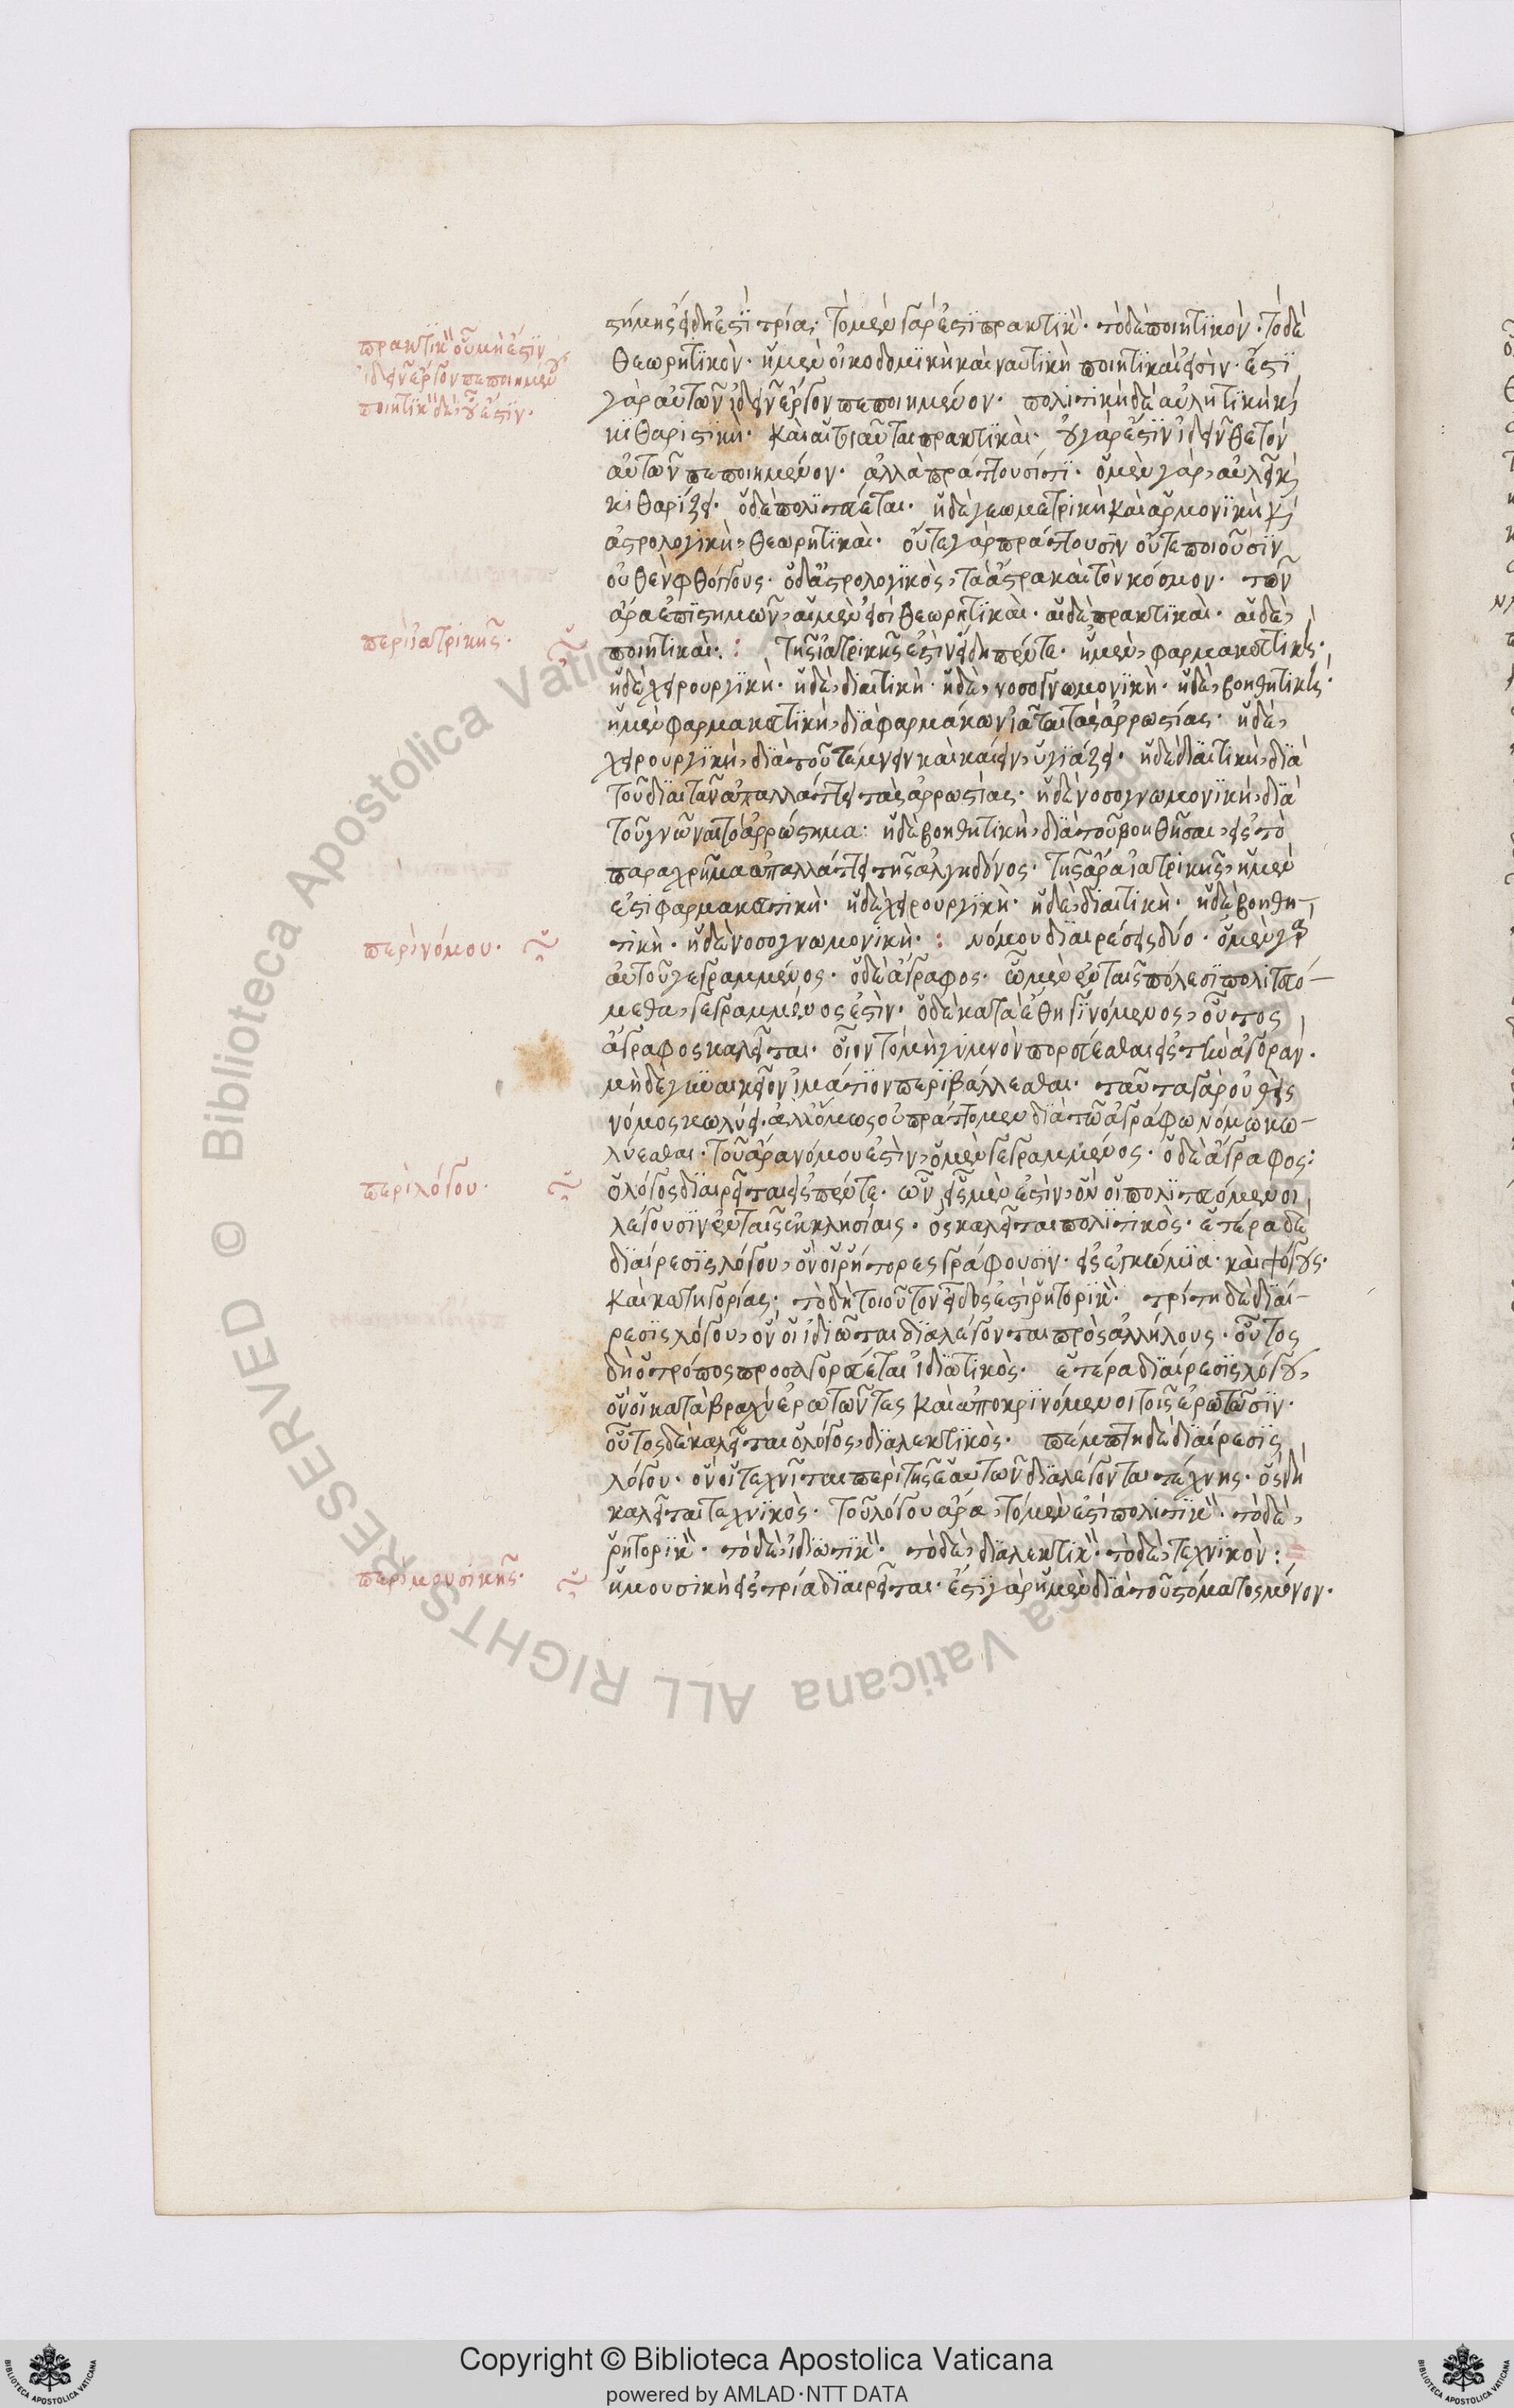 πρακτικὸν οὗ μή ἐστιν
ἰδεῖν ἔργον πεποιημένον
ποιητικὸν δὲ, οὗ ἐστίν.
στήμης εἴδη ἐστὶ τρία· τὸ μὲν γάρ ἐστι πρακτικὸν· τὸ δὲ ποιητικὸν· τὸ δὲ
θεωρητικὸν· ἡ μὲν οἰκοδομικὴ καὶ ναυτικὴ ποιητικαὶ εἰσὶν· ἔστι
γὰρ αὐτῶν ἰδεῖν ἔργον πεποιημένον· πολιτικὴ δὲ αὐλητικὴ καὶ
κιθαριστικὴ· καὶ αἱ τοιαῦται πρακτικαὶ· οὐ γάρ ἐστιν ἰδεῖν θετὸν
αὐτῶν πεποιημένον· ἀλλὰ πράττουσί τι· ὁ μὲν γὰρ, αὐλεῖ καὶ
κιθαρίζει· ὁ δὲ πολιτεύεται· ἡ δὲ γεωμετρικὴ καὶ ἁρμονικὴ καὶ
ἀστρολογικὴ, θεωρητικαὶ· οὔτε γὰρ πράττουσιν οὔτε ποιοῦσιν
οὐθὲν φθόγγους· ὁ δ' ἀστρολογικὸς, τὰ ἄστρα καὶ τὸν κόσμον· τῶν
ἄρα ἐπιστημῶν, αἱ μὲν εἰσὶ θεωρητικαὶ· αἱ δὲ πρακτικαὶ· αἱ δὲ,
περὶ ἰατρικῆς·
ποιητικαὶ: τῆς ἰατρικῆς ἐστὶν εἴδη πέντε· ἡ μὲν, φαρμακευτικὴ·
ἡ δὲ χειρουργικὴ· ἡ δὲ, διαιτικὴ· ἡ δὲ, νοσογνωμονικὴ· ἡ δὲ, βοηθητικὴ·
ἡ μὲν φαρμακευτικὴ, διὰ φαρμάκων ἰᾶται τὰς ἀρρωστίας· ἡ δὲ,
χειρουργικὴ, διὰ τοῦ τέμνειν καὶ καίειν, ὑγιάζει· ἡ δὲ διαιτικὴ, διὰ
τοῦ διαιτᾶν ἀπαλλάττει τὰς ἀρρωστίας· ἡ δὲ νοσογνωμονικὴ, διὰ
τοῦ γνῶναι τὸ ἀρρώστημα: ἡ δὲ βοηθητικὴ, διὰ τοῦ βοηθῆσαι, εἰς τὸ
παραχρῆμα ἀπαλλάττει τῆς ἀλγηδόνος· τῆς ἄρα ἰατρικῆς, ἡ μὲν
ἐστι φαρμακευτικὴ· ἡ δὲ χειρουργικὴ· ἡ δὲ, διαιτικὴ· ἡ δὲ βοηθη-
περὶ νόμου·
τικὴ· ἡ δὲ νοσογνωμονικὴ: νόμου διαιρέσεις δύο· ὁ μὲν γὰρ
αὐτοῦ γεγραμμένος· ὁ δὲ ἄγραφος· ᾧ μὲν ἐν ταῖς πόλεσι πολιτευό-
μεθα, γεγραμμένος ἐστὶν· ὁ δὲ κατὰ ἔθη γινόμενος, οὗτος
ἄγραφος καλεῖται· οἷον τὸ μὴ γυμνὸν πορεύεσθαι εἰς τὴν ἀγορὰν·
μὴ δὲ γυναικεῖον ἱμάτιον περιβάλλεσθαι· ταῦτα γὰρ οὐθεὶς
νόμος κωλύει· ἀλλ' ὅμως οὐ πράττομεν διὰ τῷ ἀγράφῳ νόμῳ κω-
λύεσθαι· τοῦ ἄρα νόμου ἐστὶν, ὁ μὲν γεγραμμένος· ὁ δὲ ἄγραφος:
περὶ λόγου·
ὁ λόγος διαιρεῖται εἰς πέντε· ὧν, εἷς μὲν ἐστὶν, ὃν οἱ πολιτευόμενοι
λέγουσιν ἐν ταῖς ἐκκλησίαις· ὃς καλεῖται πολιτικὸς· ἑτέρα δὲ
διαίρεσις λόγου, ὃν οἱ ῥήτορες γράφουσιν· εἰς ἐγκώμια· καὶ ψόγους·
καὶ κατηγορίας· τὸ δὴ τοιοῦτον εἶδος ἐστὶ ῥητορικὸν· τρίτη δὲ διαί-
ρεσις λόγου, ὃν οἱ ἰδιῶται διαλέγονται πρὸς ἀλλήλους· οὗτος
δὴ ὁ τρόπος προσαγορεύεται ἰδιωτικὸς· ἑτέρα διαίρεσις λόγου,
ὃν οἱ κατὰ βραχὺ ἐρωτῶντες καὶ ἀποκρινόμενοι τοῖς ἐρωτῶσιν·
οὗτος δὲ καλεῖται ὁ λόγος, διαλεκτικὸς· πέμπτη δὲ διαίρεσις
λόγου· ὃν οἱ τεχνῖται περὶ τῆς ἑαυτῶν διαλέγονται τέχνης· ὃς δὴ
καλεῖται τεχνικὸς· τοῦ λόγου ἄρα, τὸ μὲν ἐστὶ πολιτικὸν· τὸ δὲ,
ῥητορικὸν· τὸ δὲ, ἰδιωτικὸν· τὸ δὲ, διαλεκτικὸν· τὸ δὲ, τεχνικὸν:
περὶ μουσικῆς·
ἡ μουσικὴ εἰς τρία διαιρεῖται· ἔστι γὰρ ἡ μὲν διὰ τοῦ στόματος μόνον·
© Biblioteca Apostolica Vaticana ALL RIGHTS RESERVED
Copyright © Biblioteca Apostolica Vaticana
powered by AMLAD·NTT DATA
BIBLIOTECA APOSTOLICA VATICANA
BIBLIOTECA APOSTOLICA VATICANA